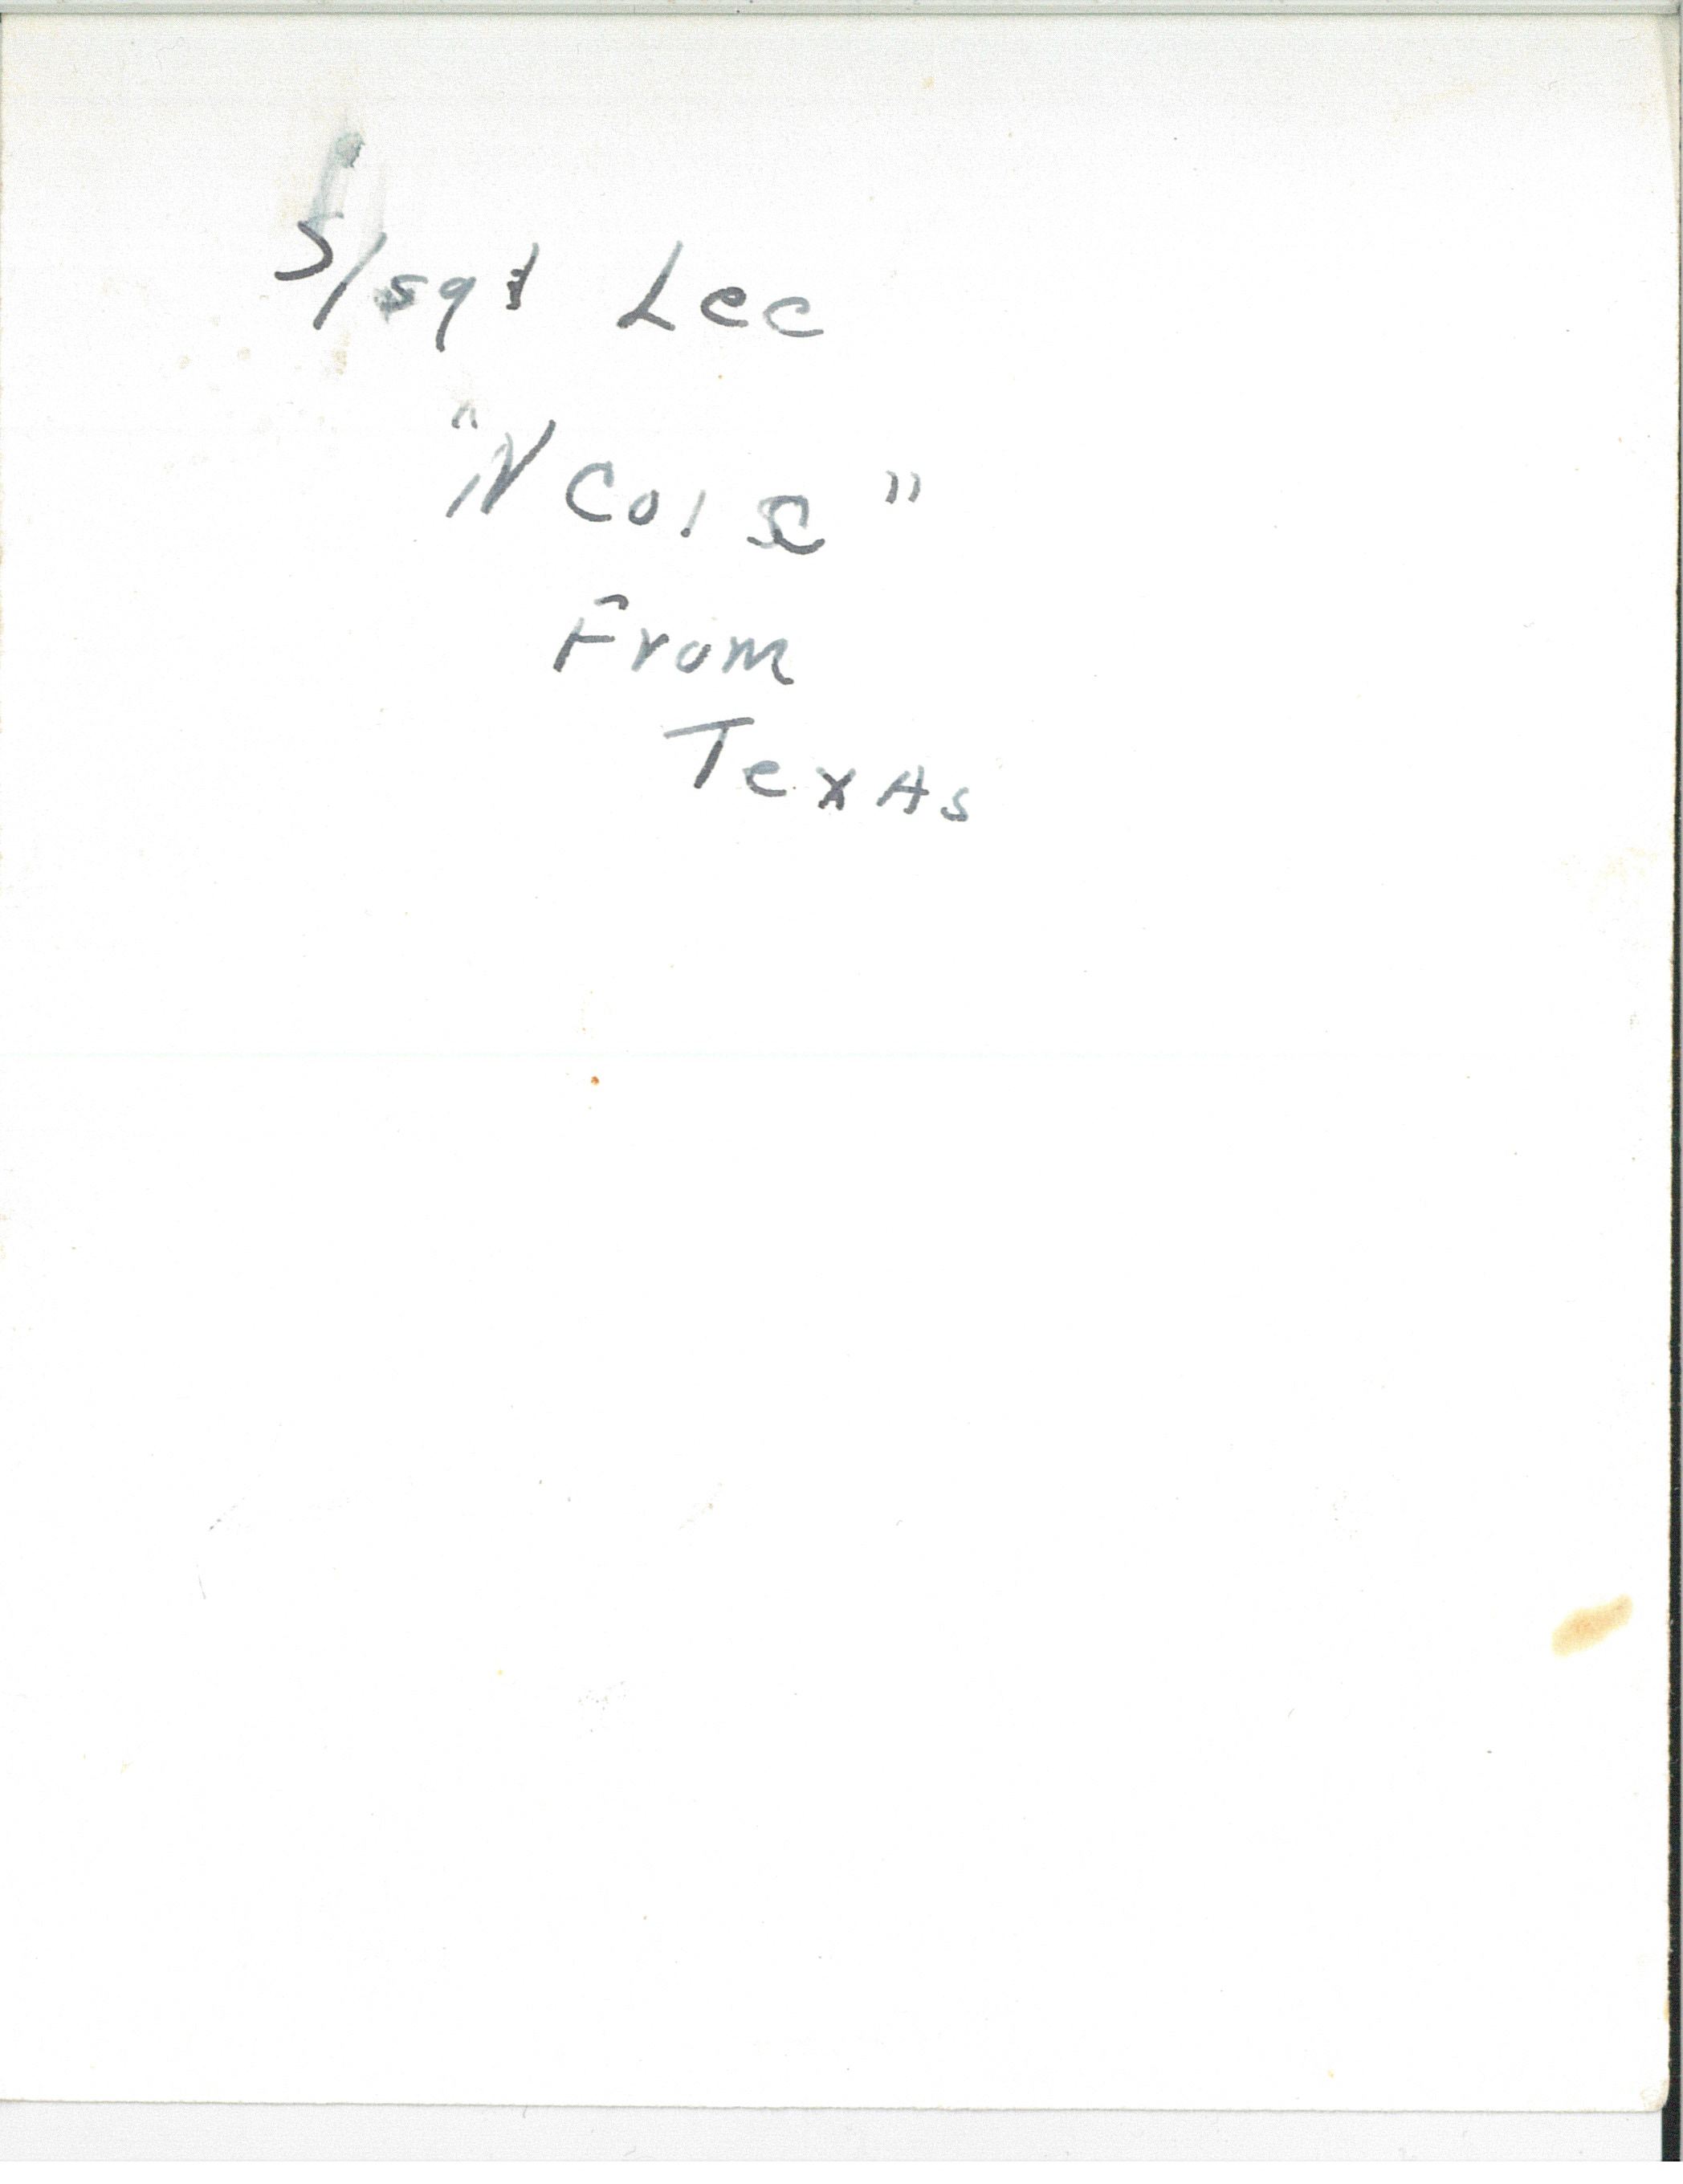 S/sgt Lee
"NCOIC"
From
Texas